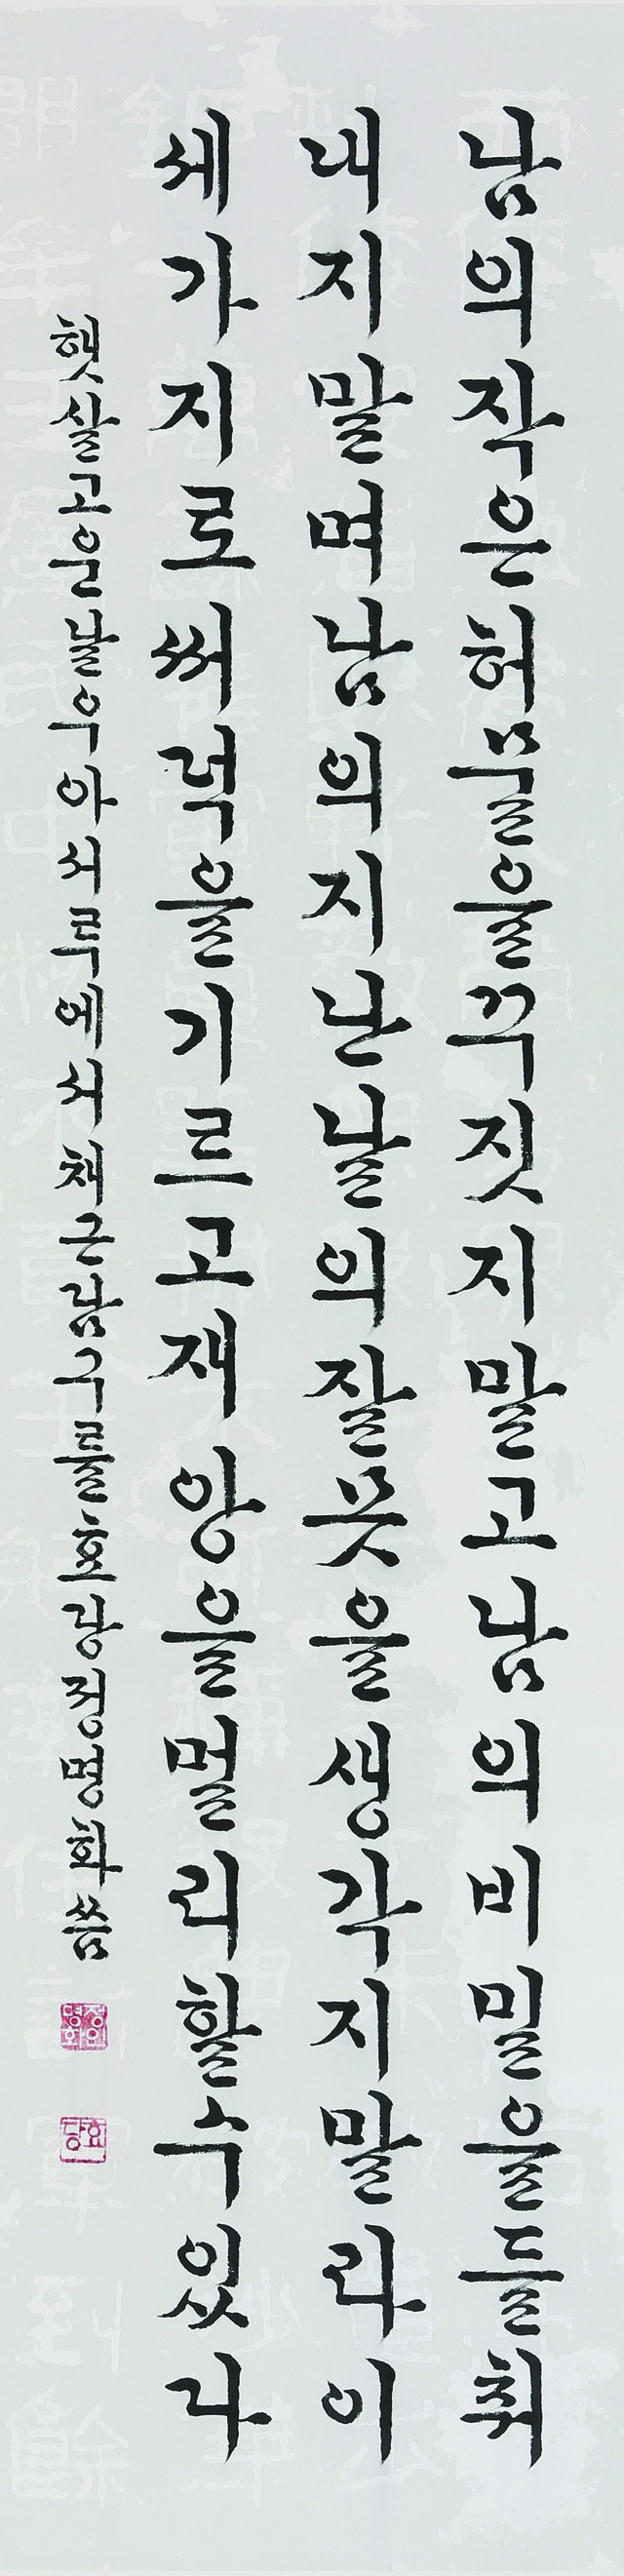 남의작은허물을꾸짓지말고남의비밀을들취
내지말며남의지난날의잘못을생각지말라이
세가지로써덕을기르고재앙을멀리할수있다
햇살고운날우아서루에서채근담구를효당정명화씀
효당